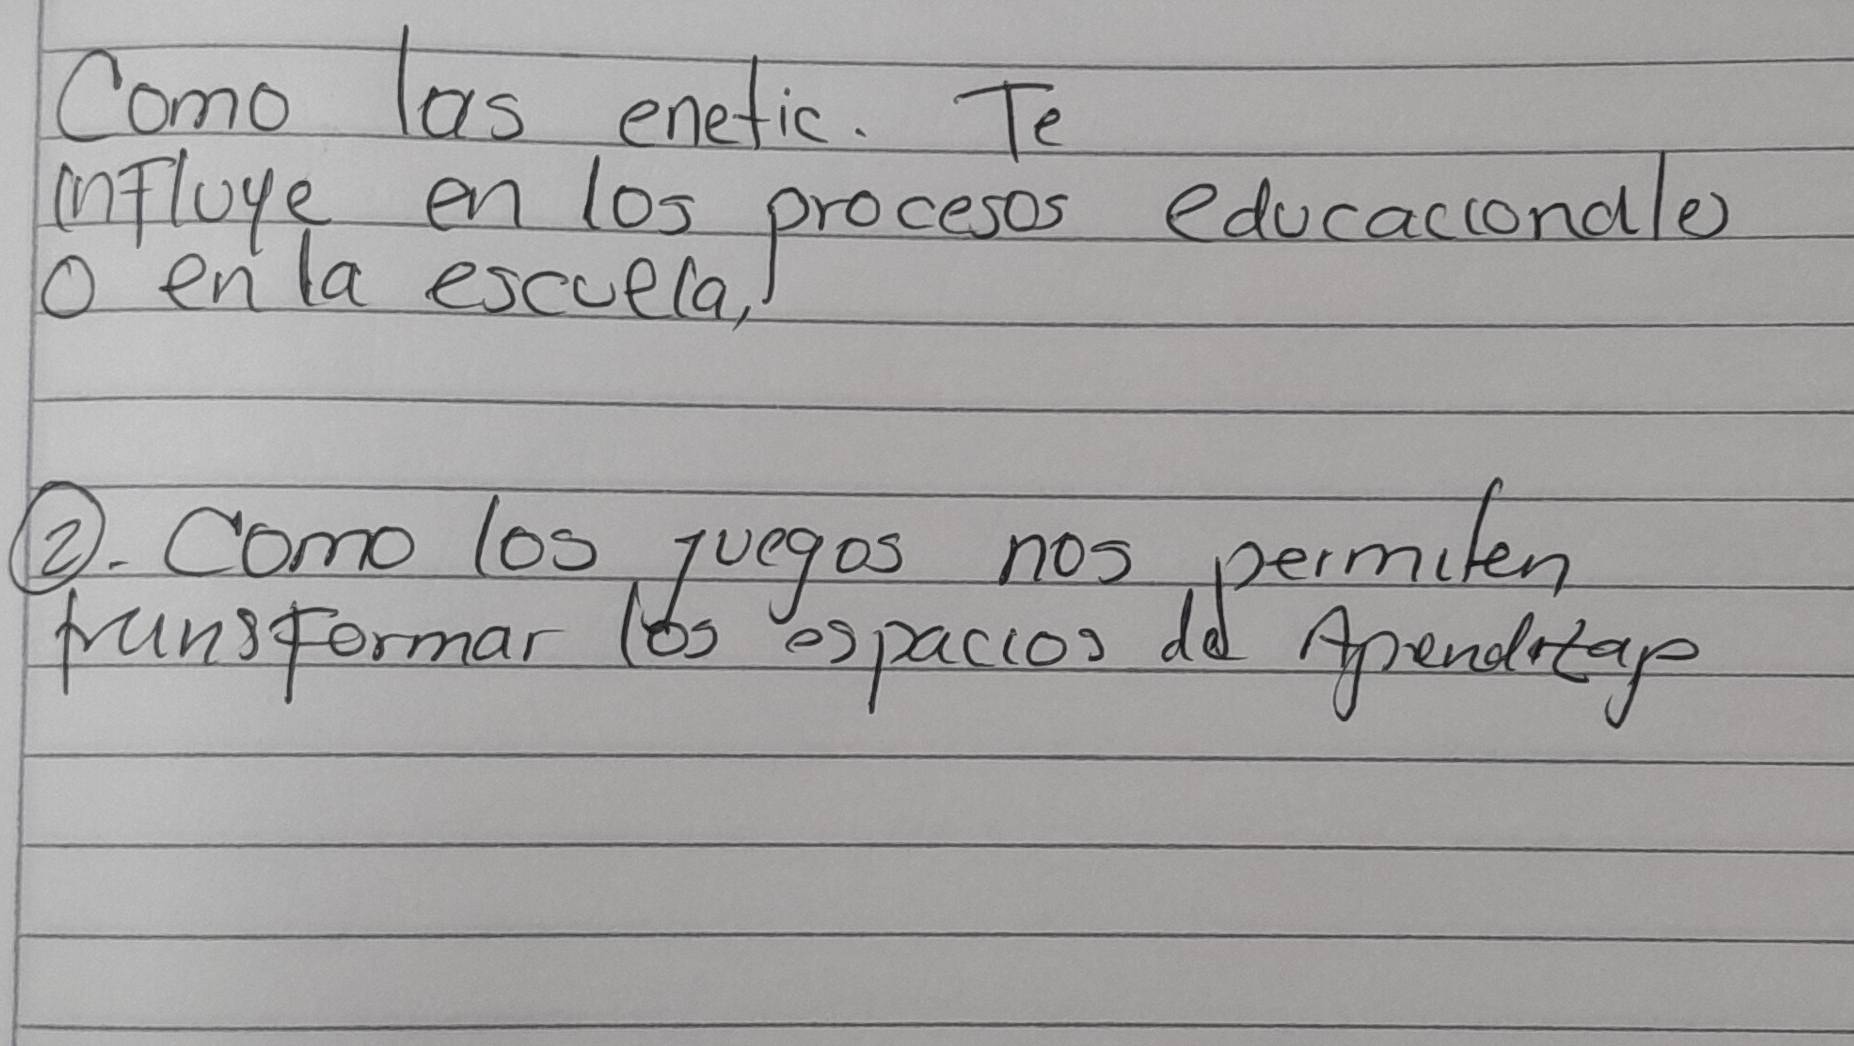 Como las enetic. Te
influye en los procesos educacionales
o en la escuela,
2. Como los juegos nos permiten
transformar los espacios del Aprenditap